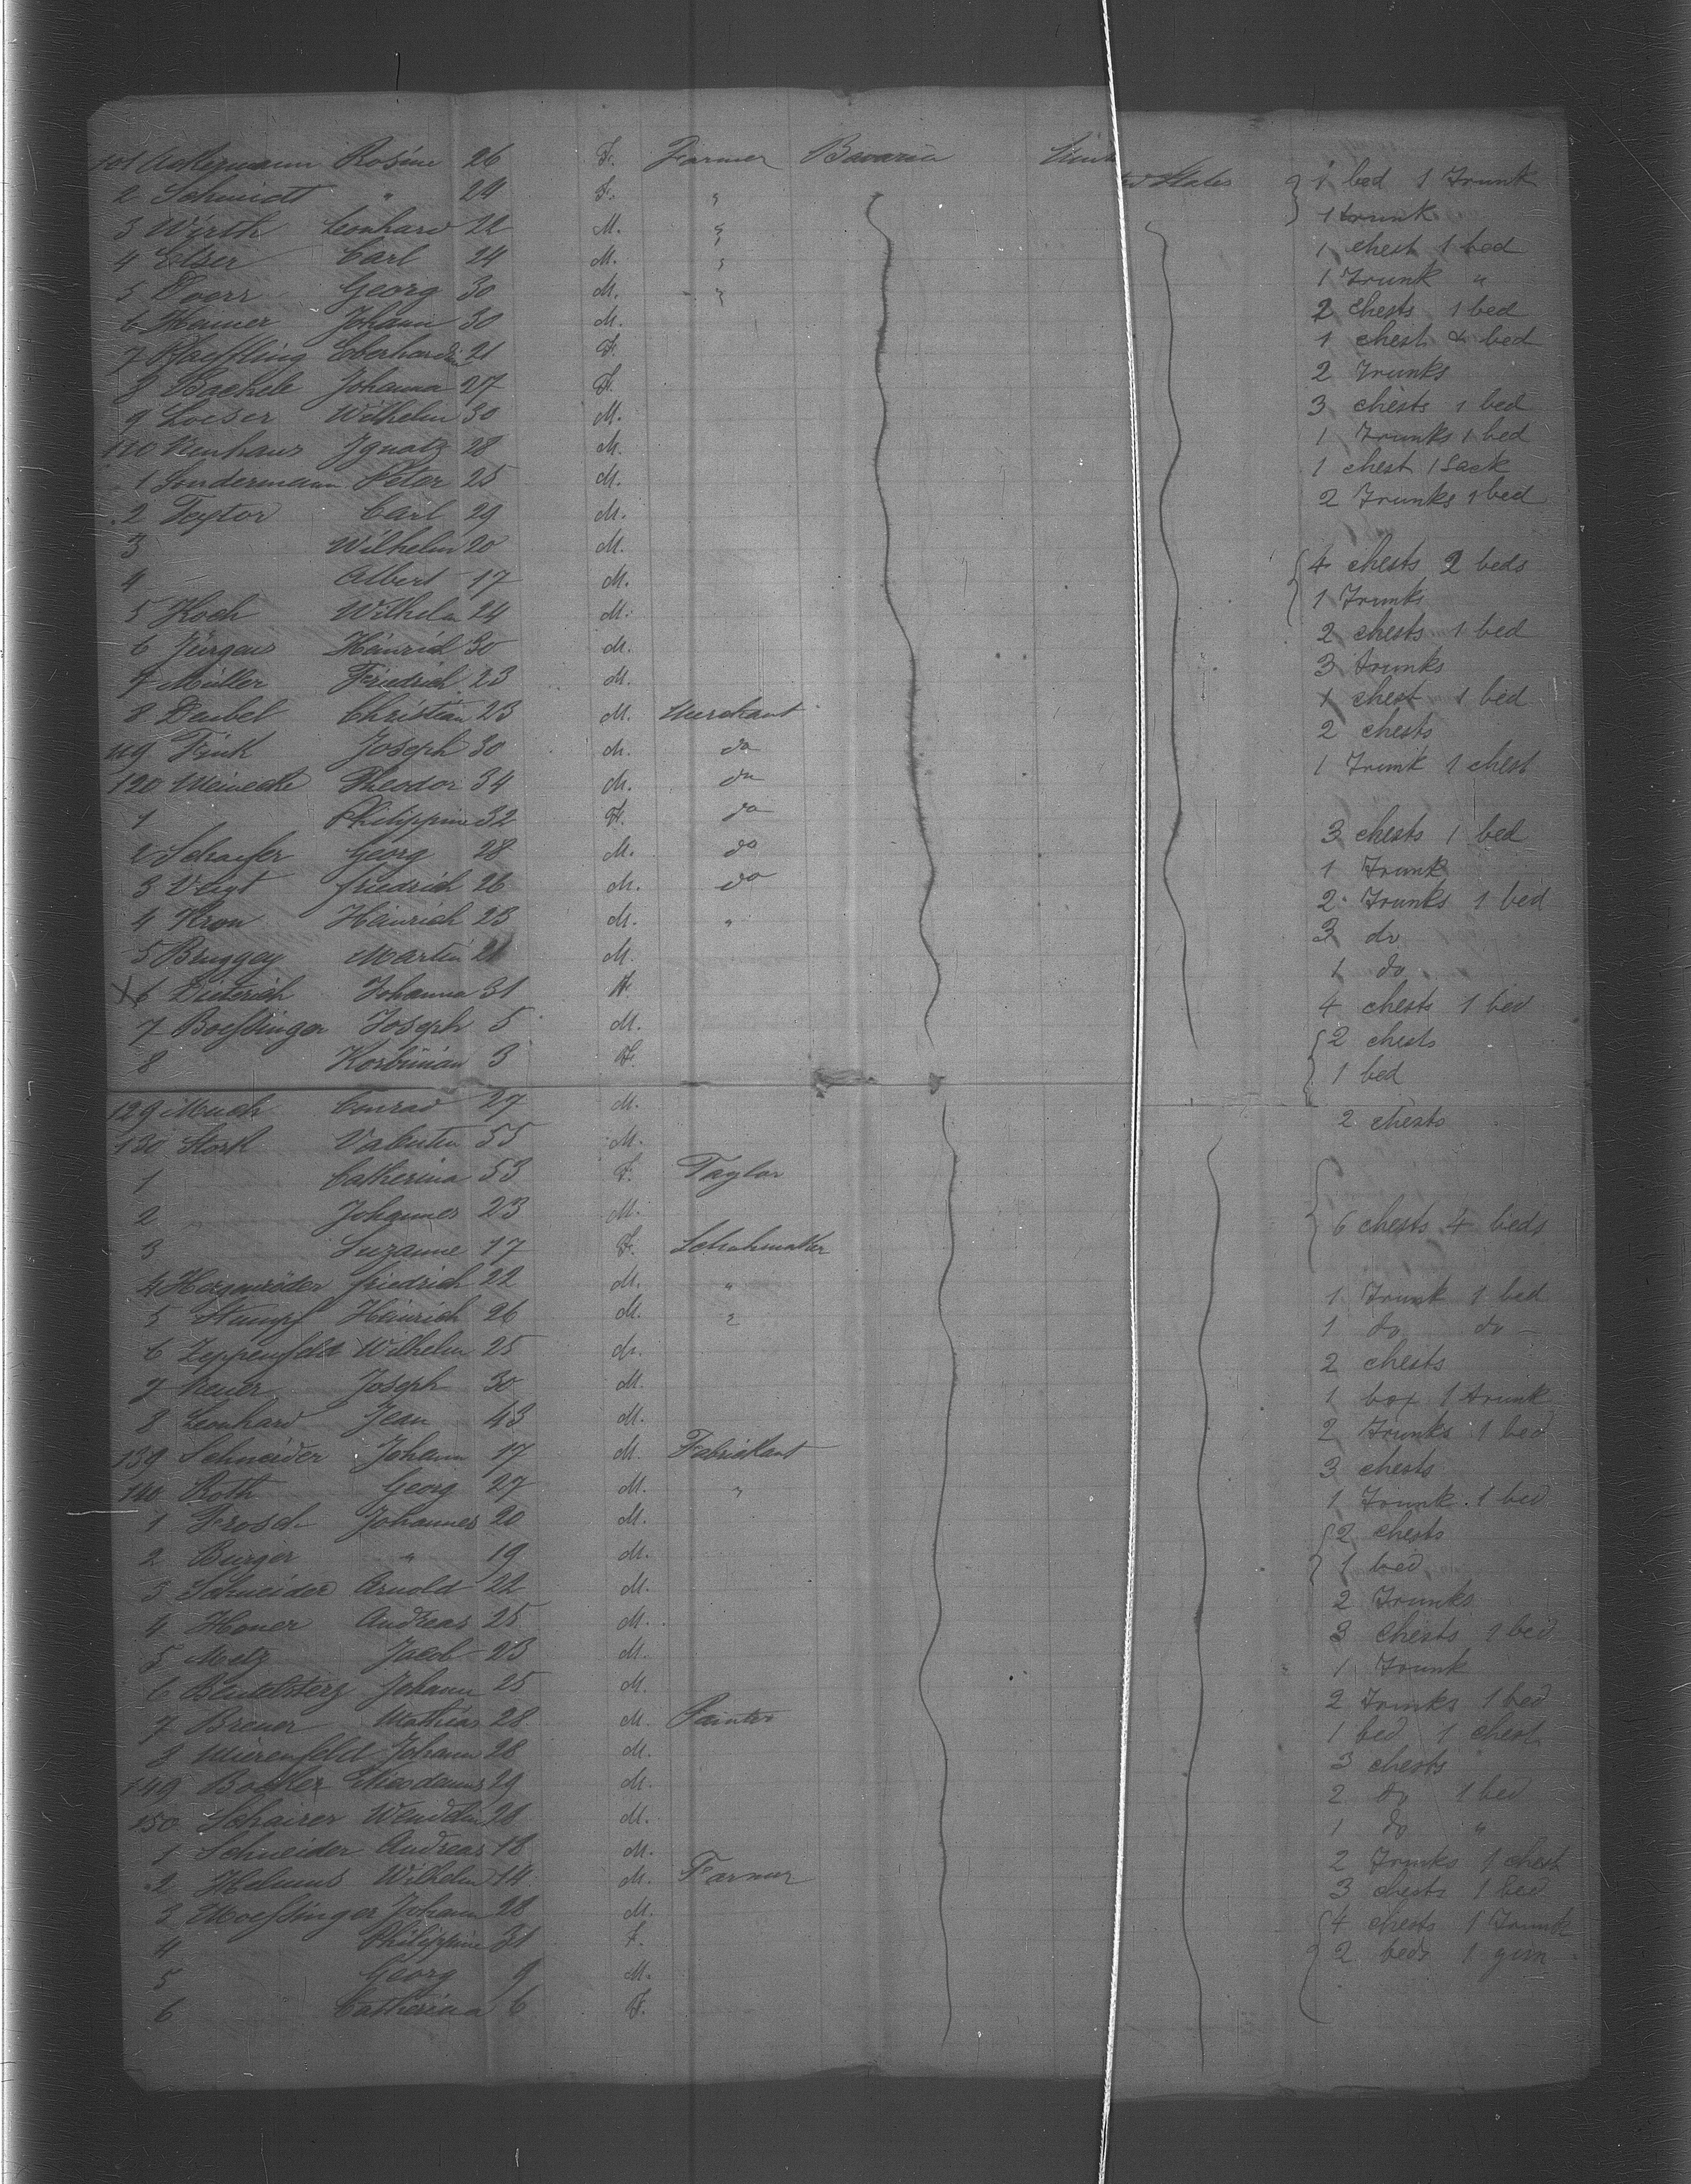 101 Ackermann Rosine 26 F. Farmer Bavaria United States 1 bed 1 Trunk
2 Schmidt " 24 F. " 1 trunk
3 Wirth Leonhard 22 M. " 1 chest 1 bed
4 Elser Carl 24 M. " 1 Trunk "
5 Doerr Georg 30 M. " 2 chests 1 bed
6 Johann 30 M. 1 chest & bed
7 Pfaeffling 21 F. 2 Trunks
8 Bachele Johanna 27 F. 3 chests 1 bed
9 Loeser Wilhelm 30 M. 1 Trunks 1 bed
110 Neuhaus Ignatz 28 M. 1 chest 1 Sack
1 Sondermann Peter 25 M. 2 Trunks 1 bed
2 Textor Carl 29 M.
3 Wilhelm 20 M. 4 chests 2 beds
4 Albert 17 M. 1 Trunks
5 Koch Wilhelm 24 M. 2 chests 1 bed
6 Jürgens Heinrich 30 M. 3 trunks
7 Müller Friedrich 23 M. 1 chest 1 bed
8 Deubel Christian 23 M. Merchant 2 chests
119 Fink Joseph 30 M. do 1 Trunk 1 chest
120 Meinecke Theodor 34 M. do
1 Philippine 32 F. do 3 chests 1 bed
2 Schaefer Georg 28 M. do 1 Trunk
3 Veigt Friedrich 26 M. do 2 Trunks 1 bed
4 Kron Heinrich 23 M. " 3 do
5 Bruggey Martin 21 M. 1 do
X6 Dieterich Johanna 31 F. 4 chests 1 bed
7 Boeßinger Joseph 5 M. 2 chests
8 Korbinian 3 F. 1 bed
129 Much Conrad 27 M. 2 chests
130 Stork Valentin 55 M.
1 Catherina 53 F. Taylor
2 " Johannes 23 M. 6 chests 4 beds
3 Suzanne 17 F. Schuhmacher
4 Hergenröder Friedrich 22 M. " 1 Trunk 1 bed
5 Stumpf Heinrich 26 M. " 1 do do
6 Zeppenfeld Wilhelm 25 M. 2 chests
7 Joseph 30 M. 1 box 1 trunk
8 Leonhard Jean 43 M. 2 Trunks 1 bed
139 Schneider Johann 17 M. Fabrikant 3 chests
140 Roth Georg 27 M. " 1 Trunk 1 bed
1 Frosch Johannes 20 M. 2 chests
2 Burger " 19 M. 1 bed
3 Schneider Arnold 22 M. 2 Trunks
4 Andreas 25 M. 3 Chests 1 bed
5 Metz Jacob 23 M. 1 Trunk
6 Johann 25 M. 2 Trunks 1 bed
7 Breuer Mathias 28 M. Painter 1 bed 1 chest
8 Mierenfeld Johann 28 M. 3 chests
149 29 M. 2 do 1 bed
150 Schairer Wendelin 28 M. 1 do "
1 Schneider Andreas 18 M. 2 Trunks 1 chest
2 Helmus Wilhelm 14 M. Farmer 3 chests 1 bed
3 Moeßinger Johann 28 M. 4 chests 1 Trunk
4 Philippine 31 F. 2 beds 1 gun
5 Georg 9 M.
6 Catherina 6 F.